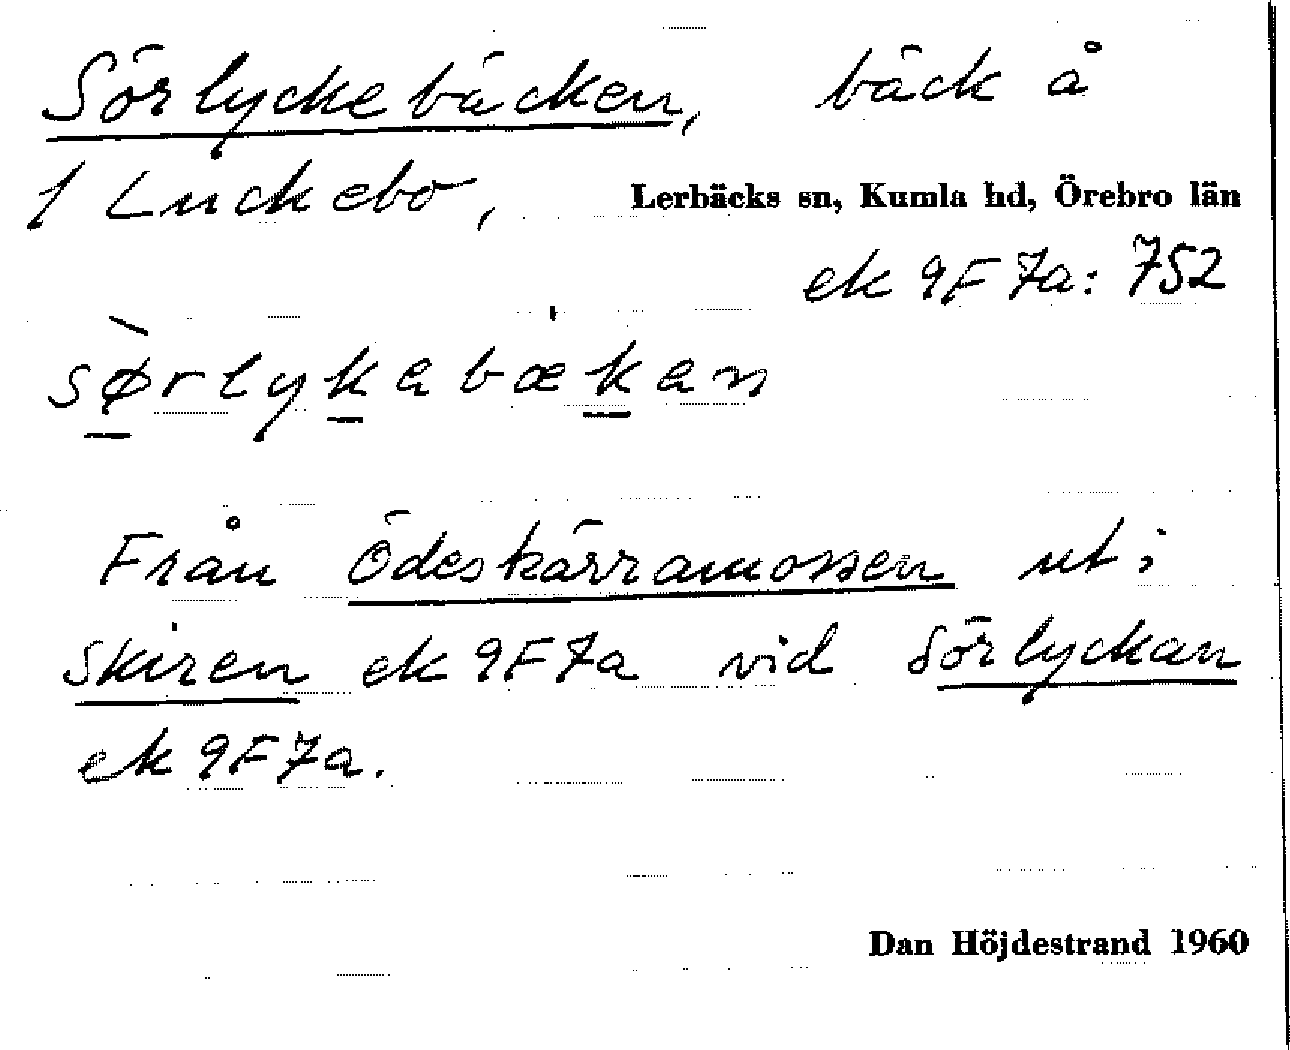 Sörlyckebäcken, bäck å
1 Luckebo, Lerbäcks sn, Kumla hd, Örebro län
ek 9F7a: 752
sø̀rlykabækan
Från Ödeskärramossen ut i
Skiren ek 9F7a vid Sörlyckan
ek 9F7a.
Dan Höjdestrand 1960